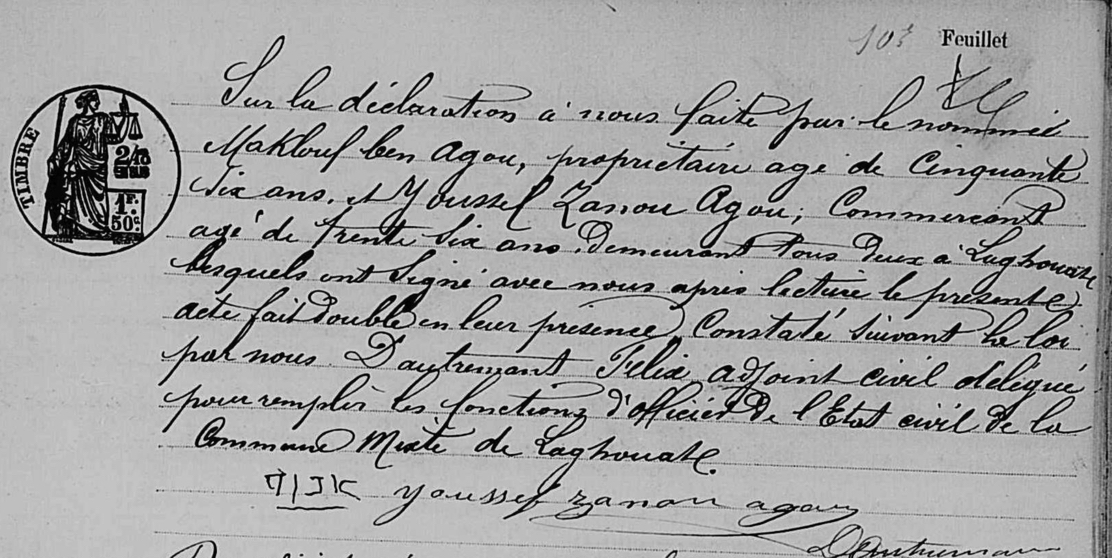 103 Feuillet
TIMBRE
2/10 EN SUS
1F. 50c.
Sur la déclaration à nous faite par le nommée
Maklouf ben Agou, propriétaire agé de Cinquante
Six ans, et Youssef Zanou Agou, Commercant
agé de trente Six ans, Demeurant tous deux à Laghouate
lesquels ont Signé avec nous après lecture le présente
acte fait double en leur présence, Constaté Suivant la loi
par nous Dautremant Félix adjoint civil délégué
pour remplir les fonctions d'officier de l'Etat civil de la
Commune Mixte de Laghouate.
youssef zanou agou
Dautremant